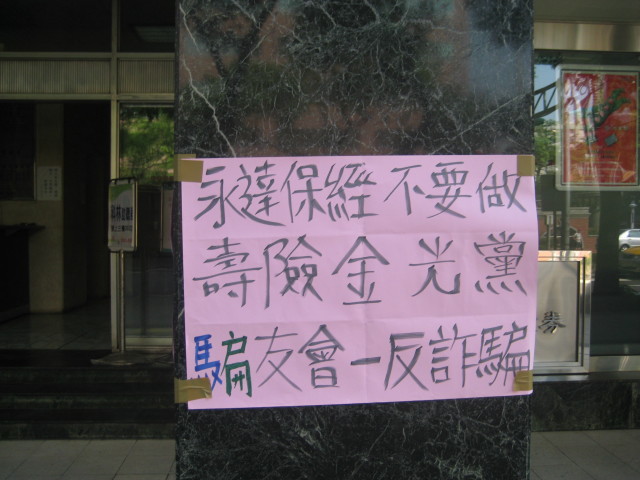 永達保經 不要做
壽險金光黨
騙友會一反詐騙
券